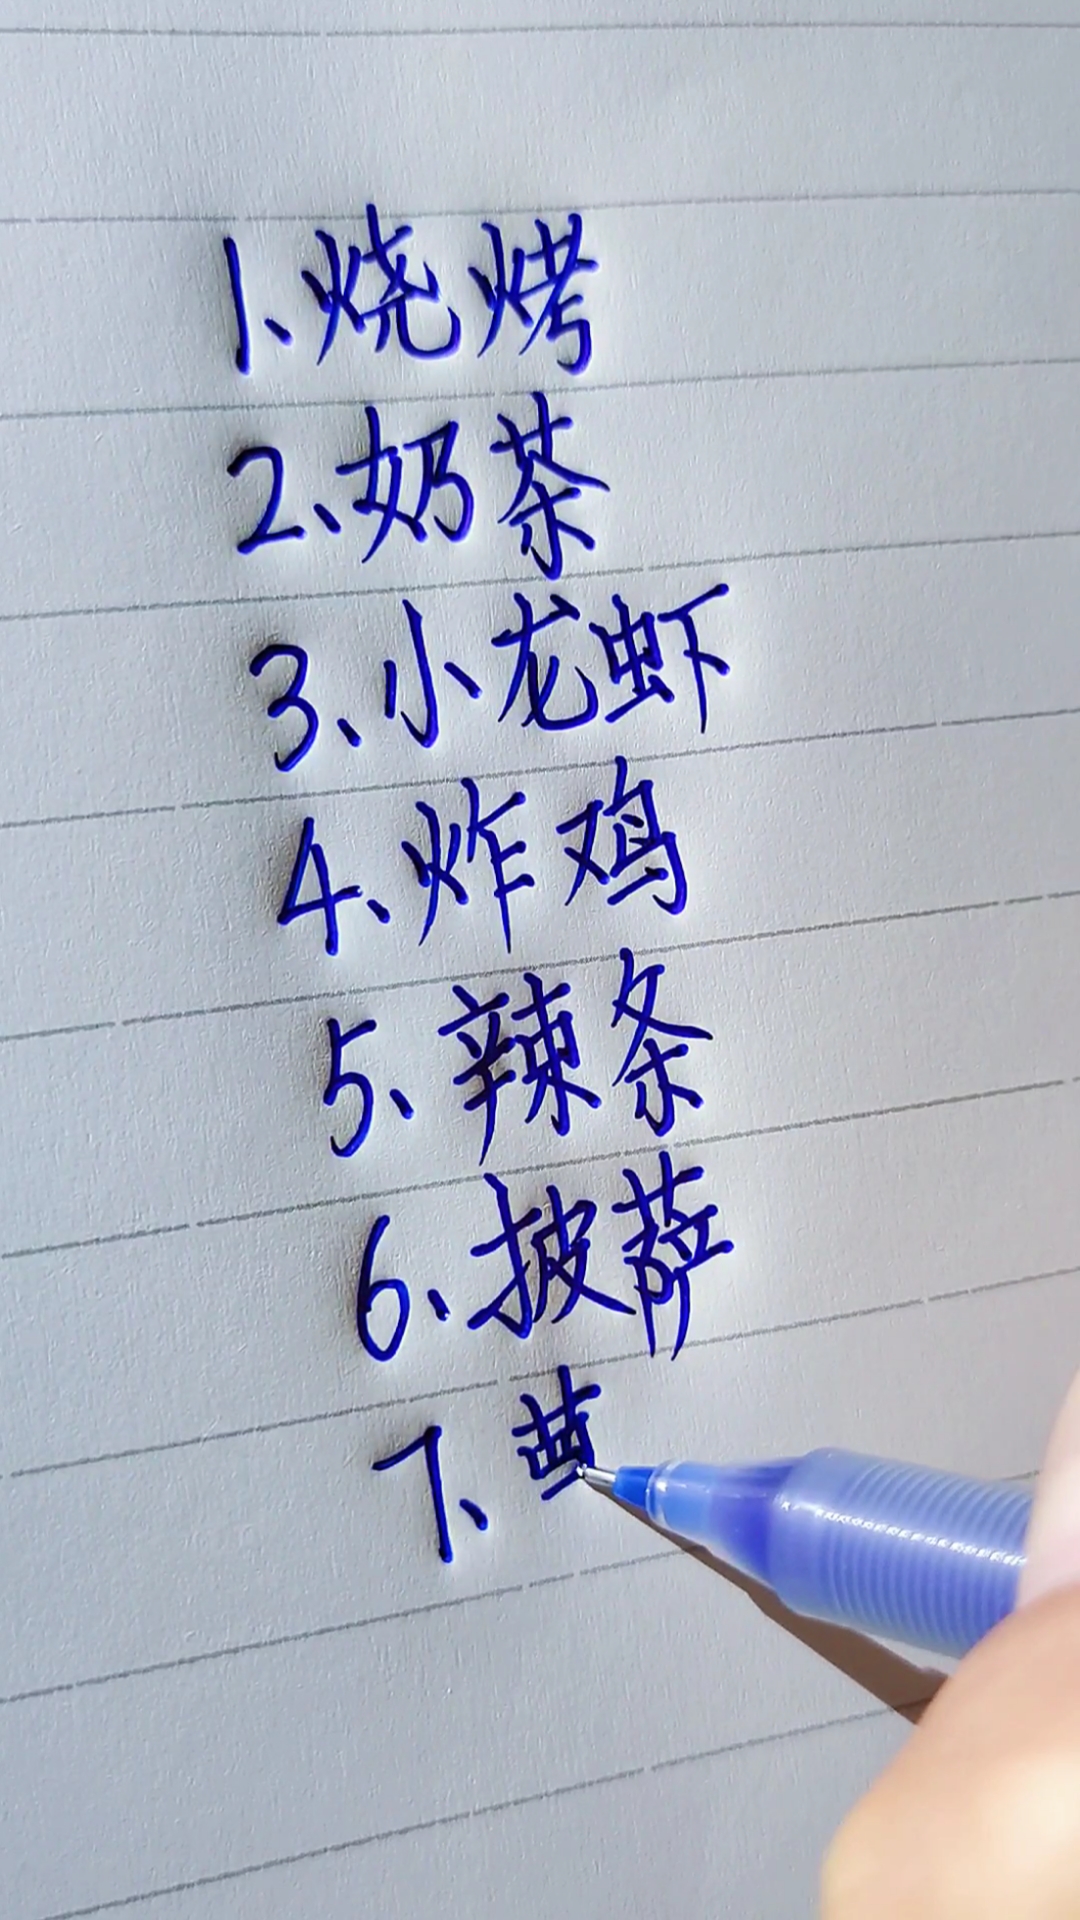 1、烧烤
2、奶茶
3、小龙虾
4、炸鸡
5、辣条
6、披萨
7、